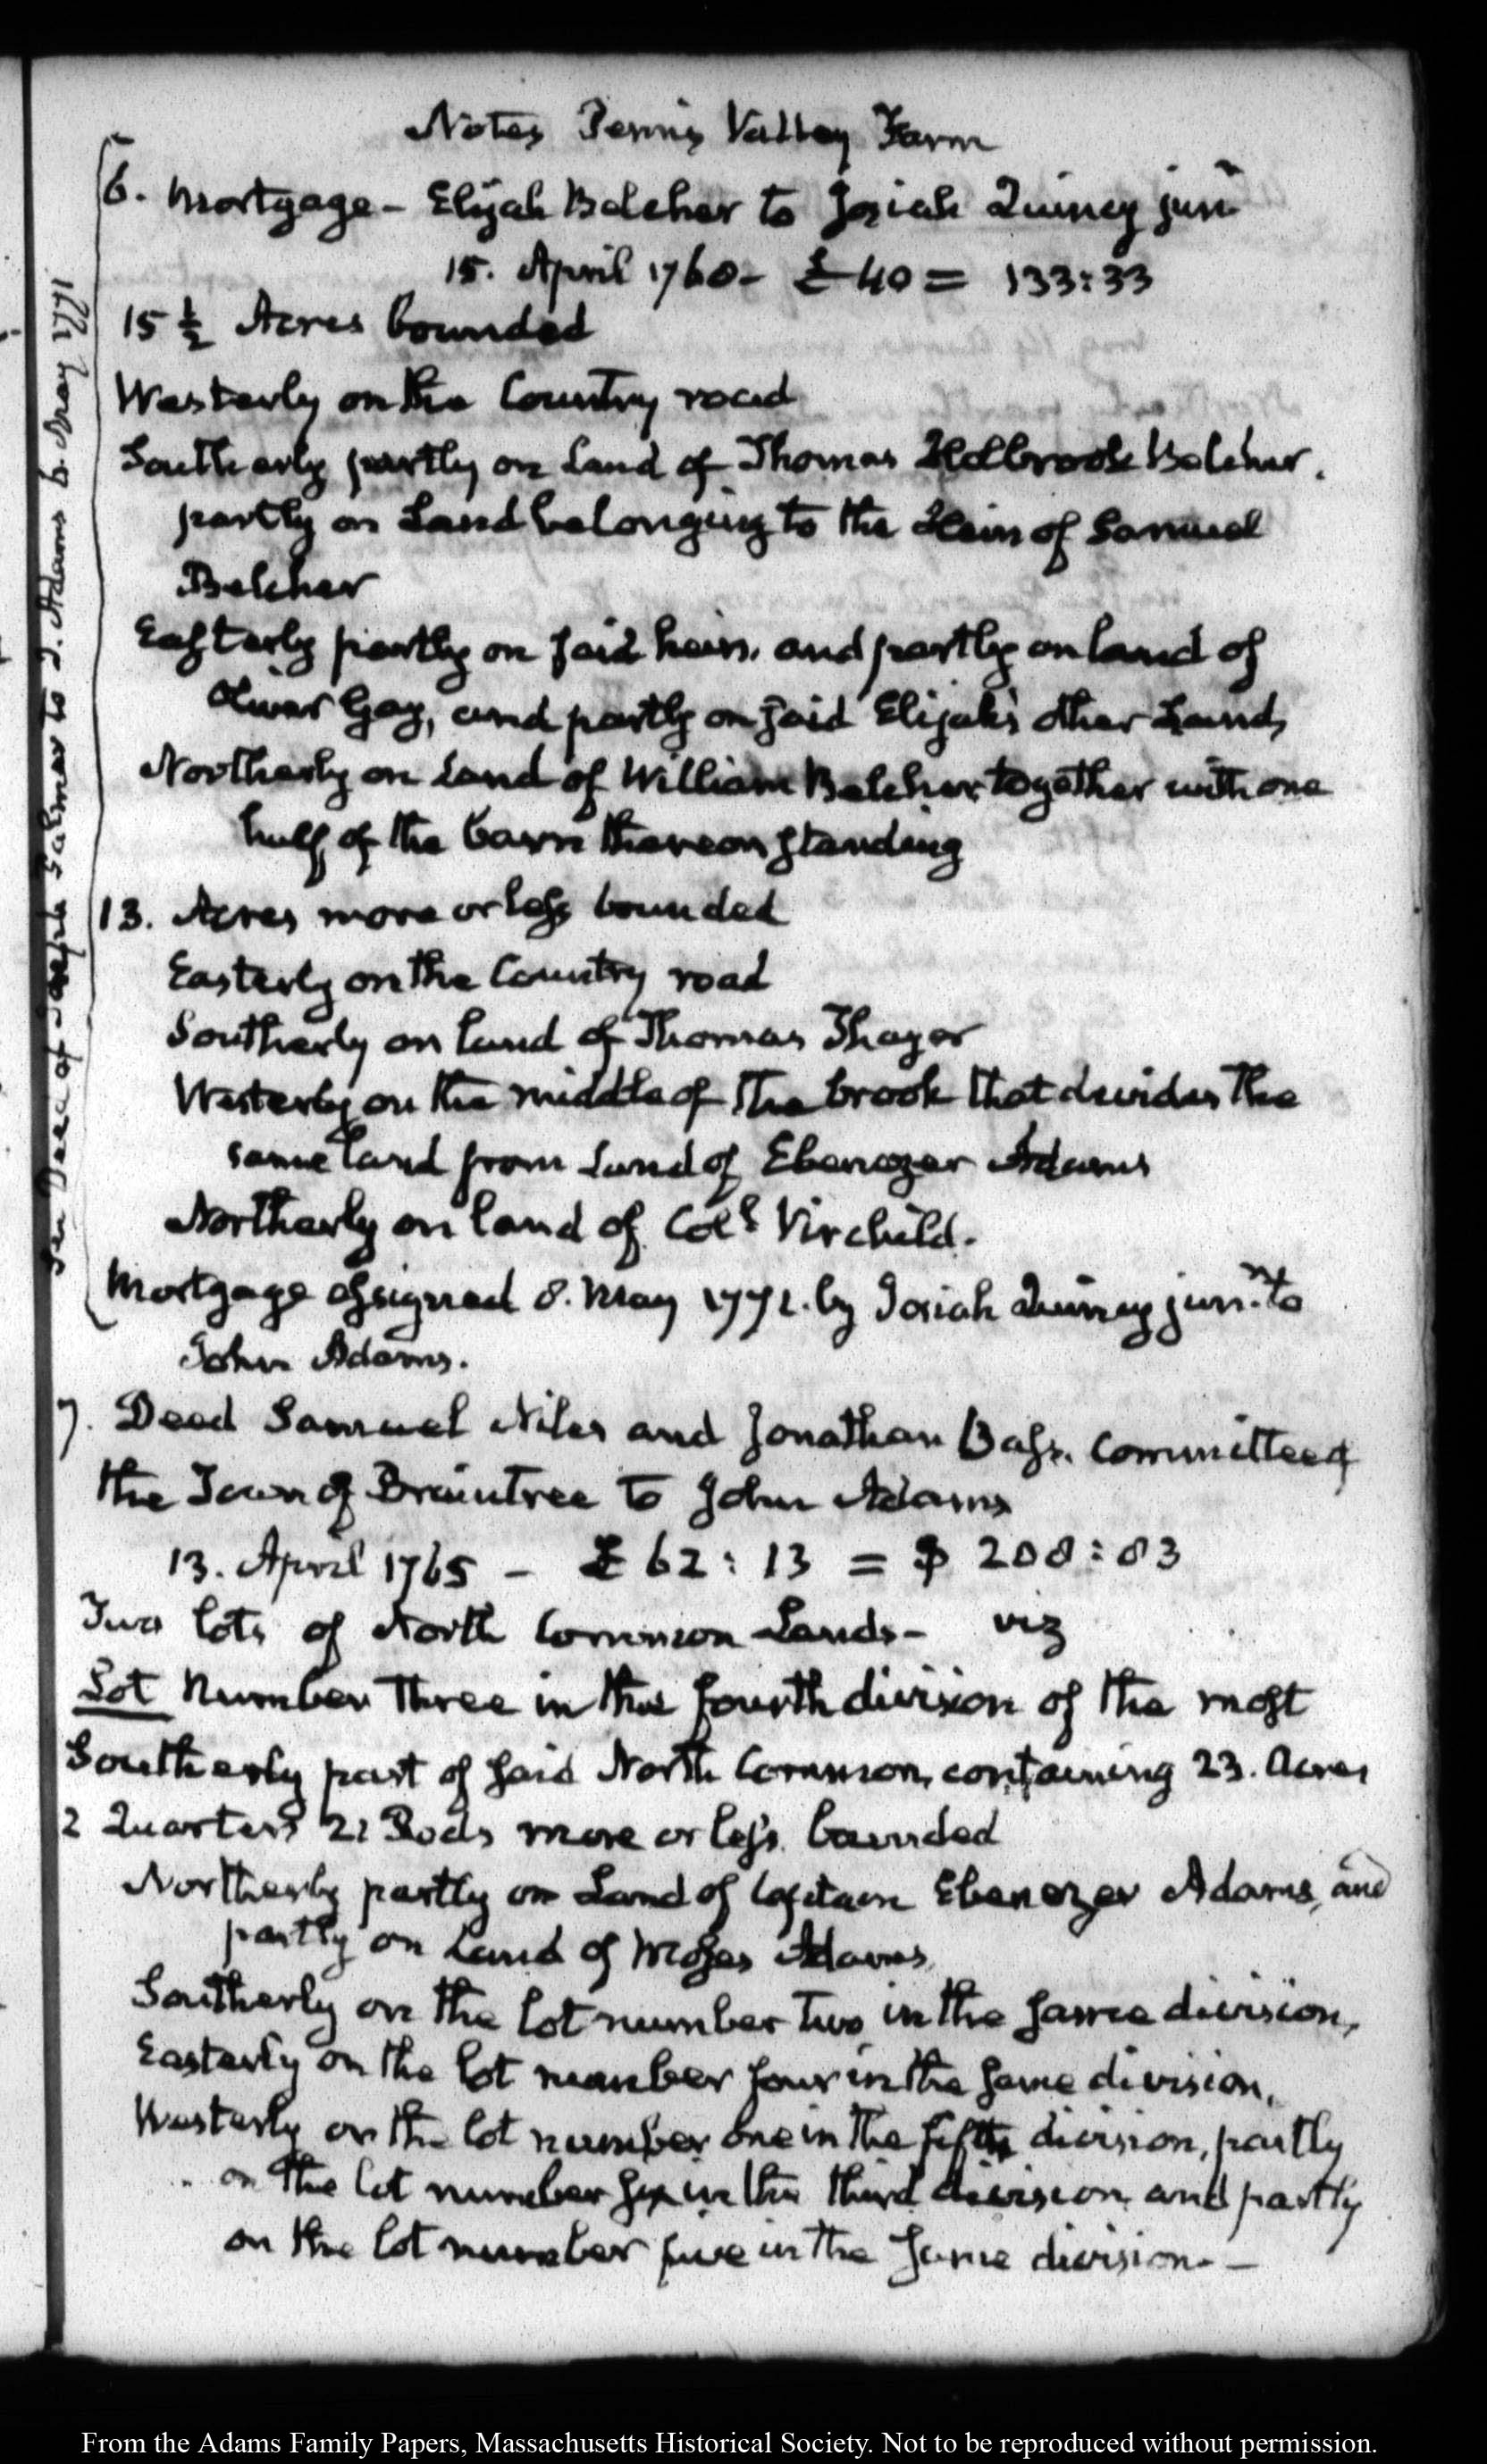 Notes Penns Valley Farm
6. Mortgage – Elijah Belcher to Josiah Quincy junr
15. April 1760 – £ 40 = 133:33
15 ½ Acres bounded
Westerly on the Country road
Southerly partly on Land of Thomas Holbrook Belcher.
partly on Land belonging to the Heirs of Samuel
Belcher
Easterly partly on said heirs, and partly on land of
Oliver Gay, and partly on said Elijah's other Land,
Northerly on Land of William Belcher, together with one
half of the barn thereon standing
13. Acres more or less bounded
Easterly on the Country road
Southerly on land of Thomas Thayer
Westerly on the middle of the brook that divides the
same land from Land of Ebenezer Adams
Northerly on land of Coll Virchild.
Mortgage assigned 8. May 1771. by Josiah Quincy junr. to
John Adams.
See Deed of Joseph Palmer to J. Adams 6. May 1771
7. Deed Samuel Niles and Jonathan Bass. Committee of
the Town of Braintree to John Adams
13. April 1765 – £ 62 : 13 = $ 208 : 83
Two lots of North Common Lands – viz
Lot Number Three in the fourth division of the most
Southerly part of said North Common, containing 23. Acres
2 Quarters 21 Rods more or less. bounded
Northerly partly on Land of Captain Ebenezer Adams, and
partly on Land of Moses Adams,
Southerly on the lot number two in the same division,
Easterly on the lot number four in the same division,
Westerly on the lot number one in the fifth division, partly
on the lot number six in the third division, and partly
on the lot number five in the same division. –
From the Adams Family Papers, Massachusetts Historical Society. Not to be reproduced without permission.